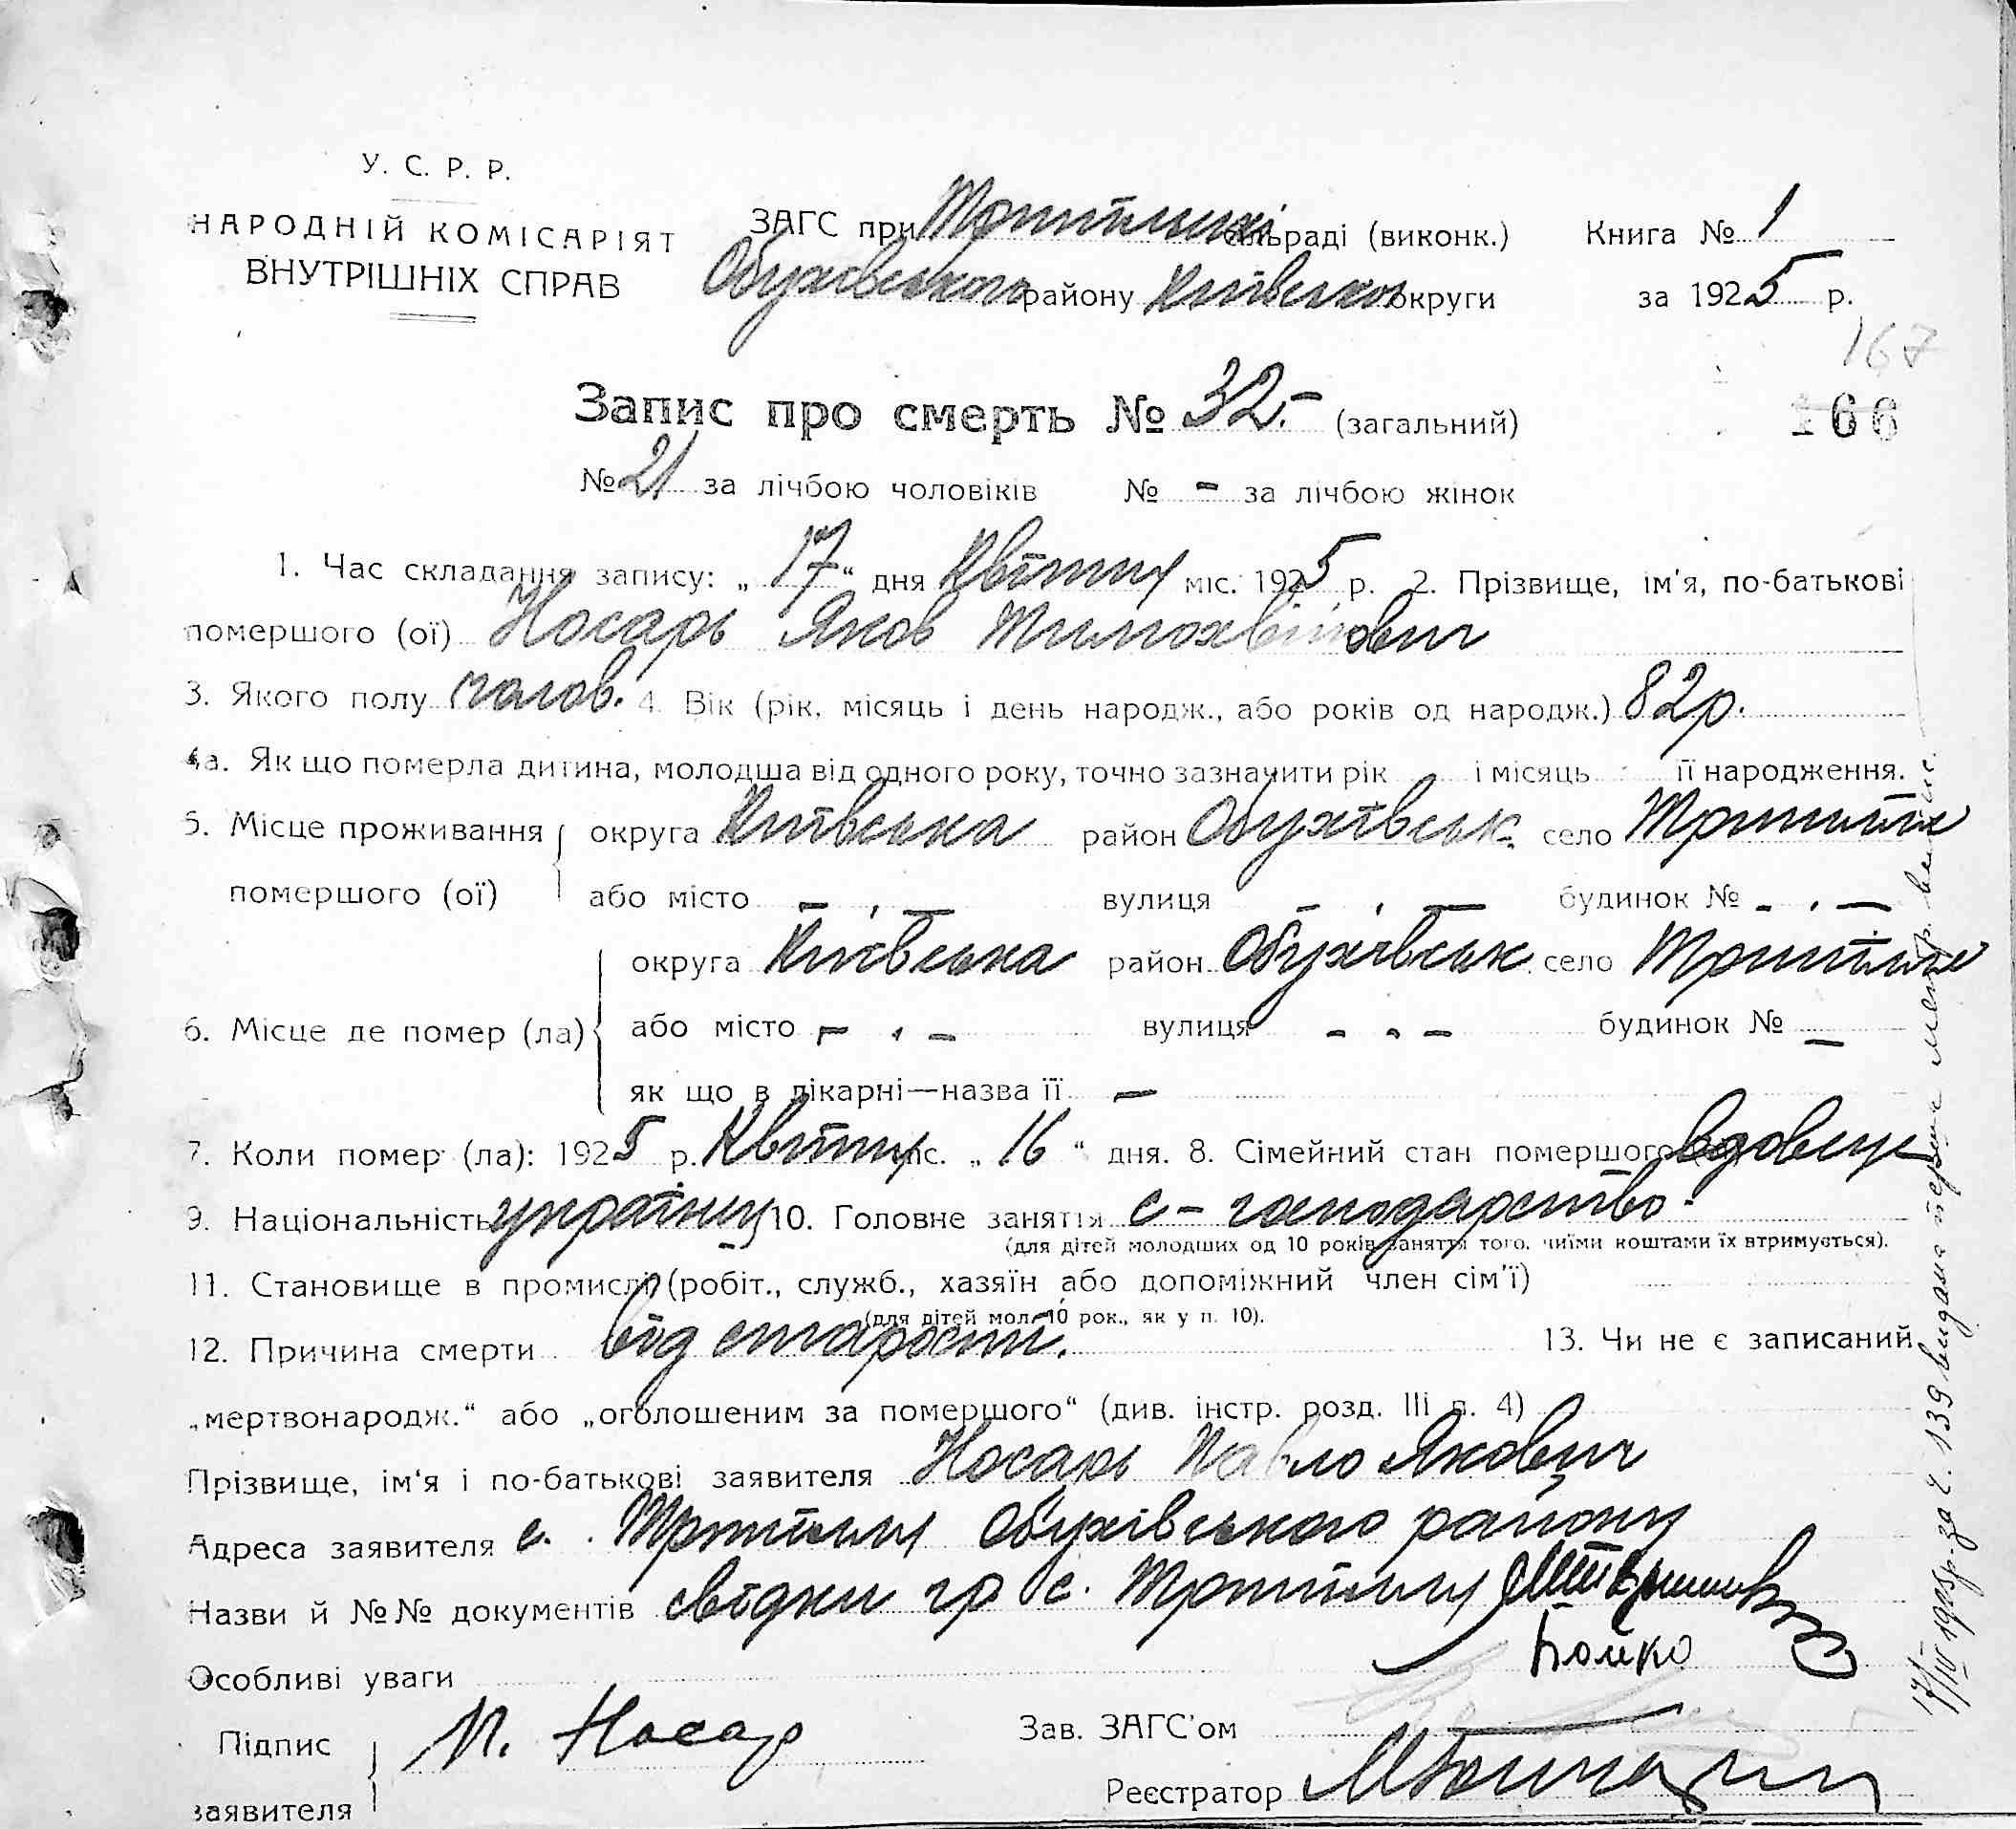 У. С. Р. Р.
НАРОДНІЙ КОМІСАРІЯТ
ВНУТРІШНІХ СПРАВ
ЗАГС при Трипільскі сільраді (виконк.) Книга № 1
Обухівського району Київсько округи за 1925 р.
167
Запис про смерть № 32.- (загальний)
166
№ 21 за лічбою чоловіків № - за лічбою жінок
1. Час складання запису: „ 17 “ дня Квітня міс. 1925 р. 2. Прізвище, ім'я, по-батькові
помершого (ої) Носарь Яков Тимохвійович
3. Якого полу чолов. 4. Вік (рік, місяць і день народж., або років од народж.) 82 р.
4а. Як що померла дитина, молодша від одного року, точно зазначити рік і місяць її народження.
5. Місце проживання округа Київська район Обухівськ. село Трипілля
помершого (ої) або місто - . - вулиця - . - будинок № - . -
округа Київська район Обухівськ. село Трипілля
6. Місце де помер (ла) або місто - . - вулиця - . - будинок № -
як що в лікарні—назва її -
7. Коли помер (ла): 1925 р. Квітня міс. „ 16 “ дня. 8. Сімейний стан помершого вдовець
9. Національність українець 10. Головне заняття с-господарство
(для дітей молодших од 10 років заняття того, чиїми коштами їх втримується).
11. Становище в промислі (робіт., служб., хазяїн або допоміжний член сім'ї)
(для дітей мол. 10 рок., як у п. 10).
12. Причина смерти від старости. 13. Чи не є записаний
„мертвонародж.“ або „оголошеним за помершого“ (див. інстр. розд. III п. 4)
Прізвище, ім'я і по-батькові заявителя Носарь Павло Якович
Адреса заявителя с. Трипілля Обухівського району
Назви й №№ документів свідки гр с. Трипілля
Бойко
Особливі уваги
Підпис П. Носар Зав. ЗАГС'ом
заявителя Реєстратор
17/IV 1925р. за ч. 139 видана перша метр. випис.